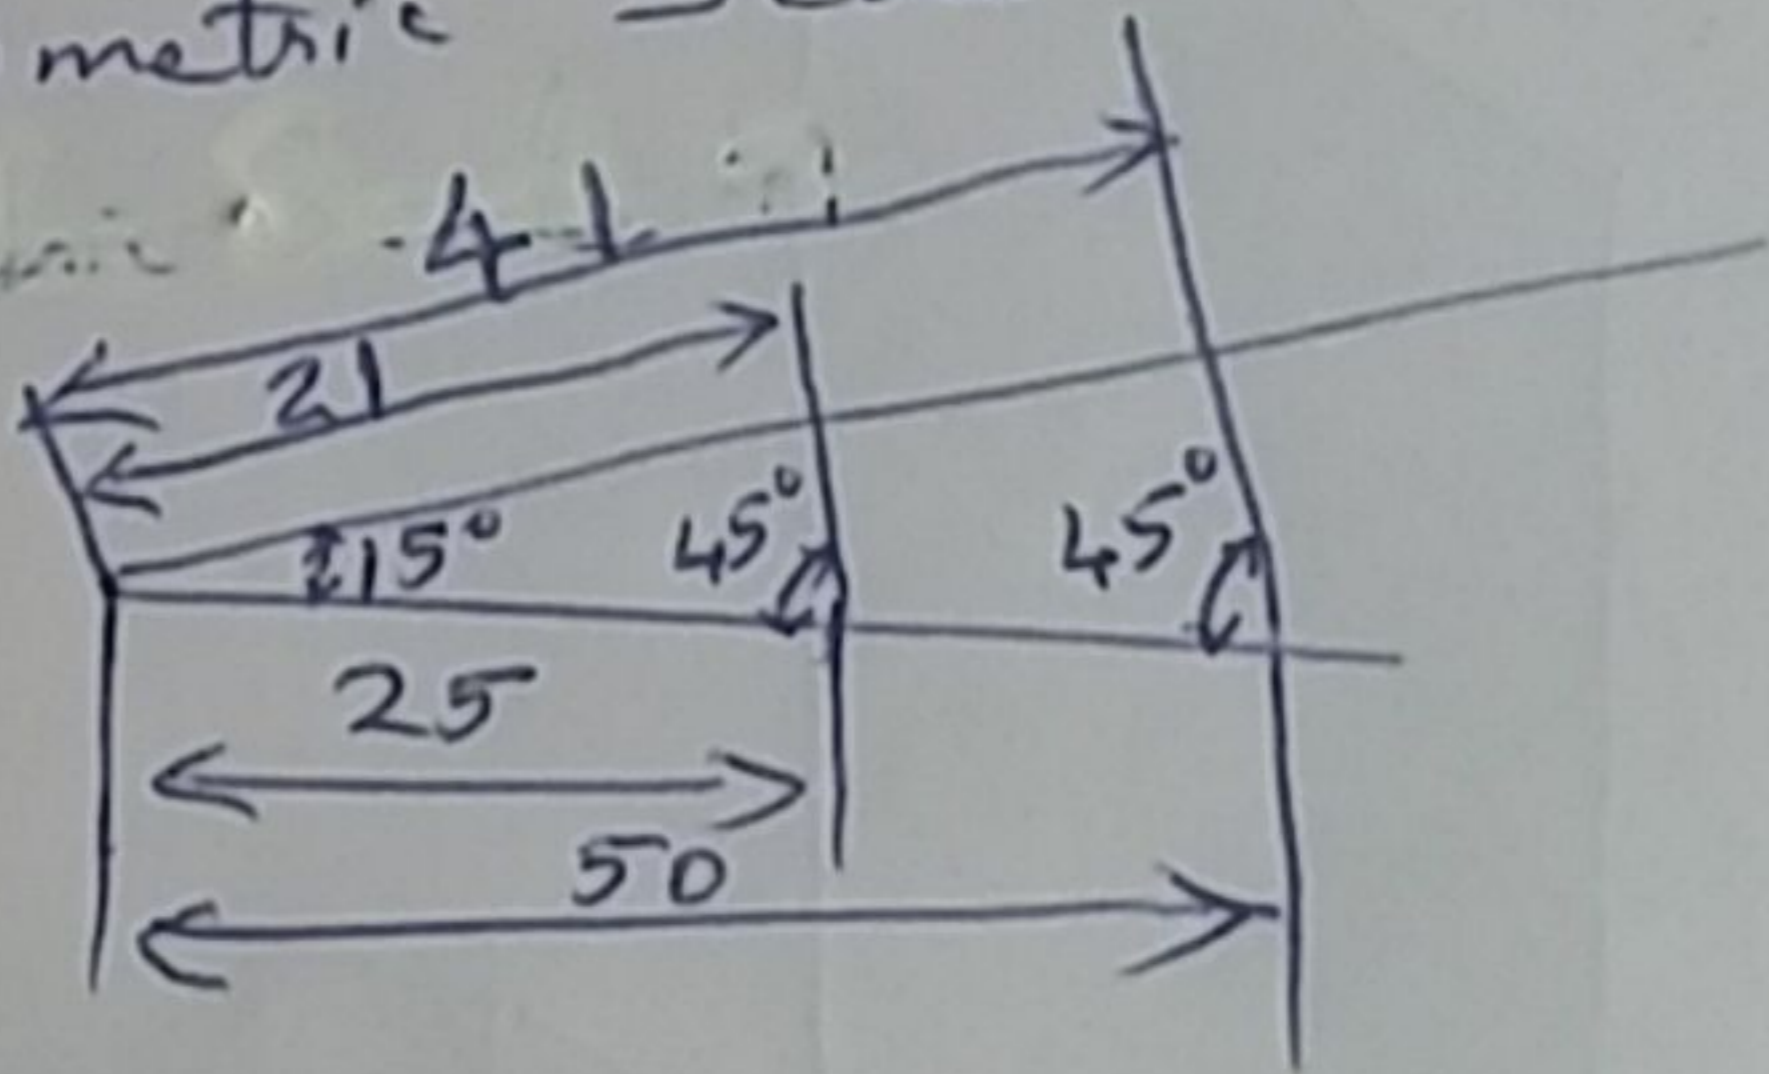 metric
41
21
215°
45°
45°
25
50